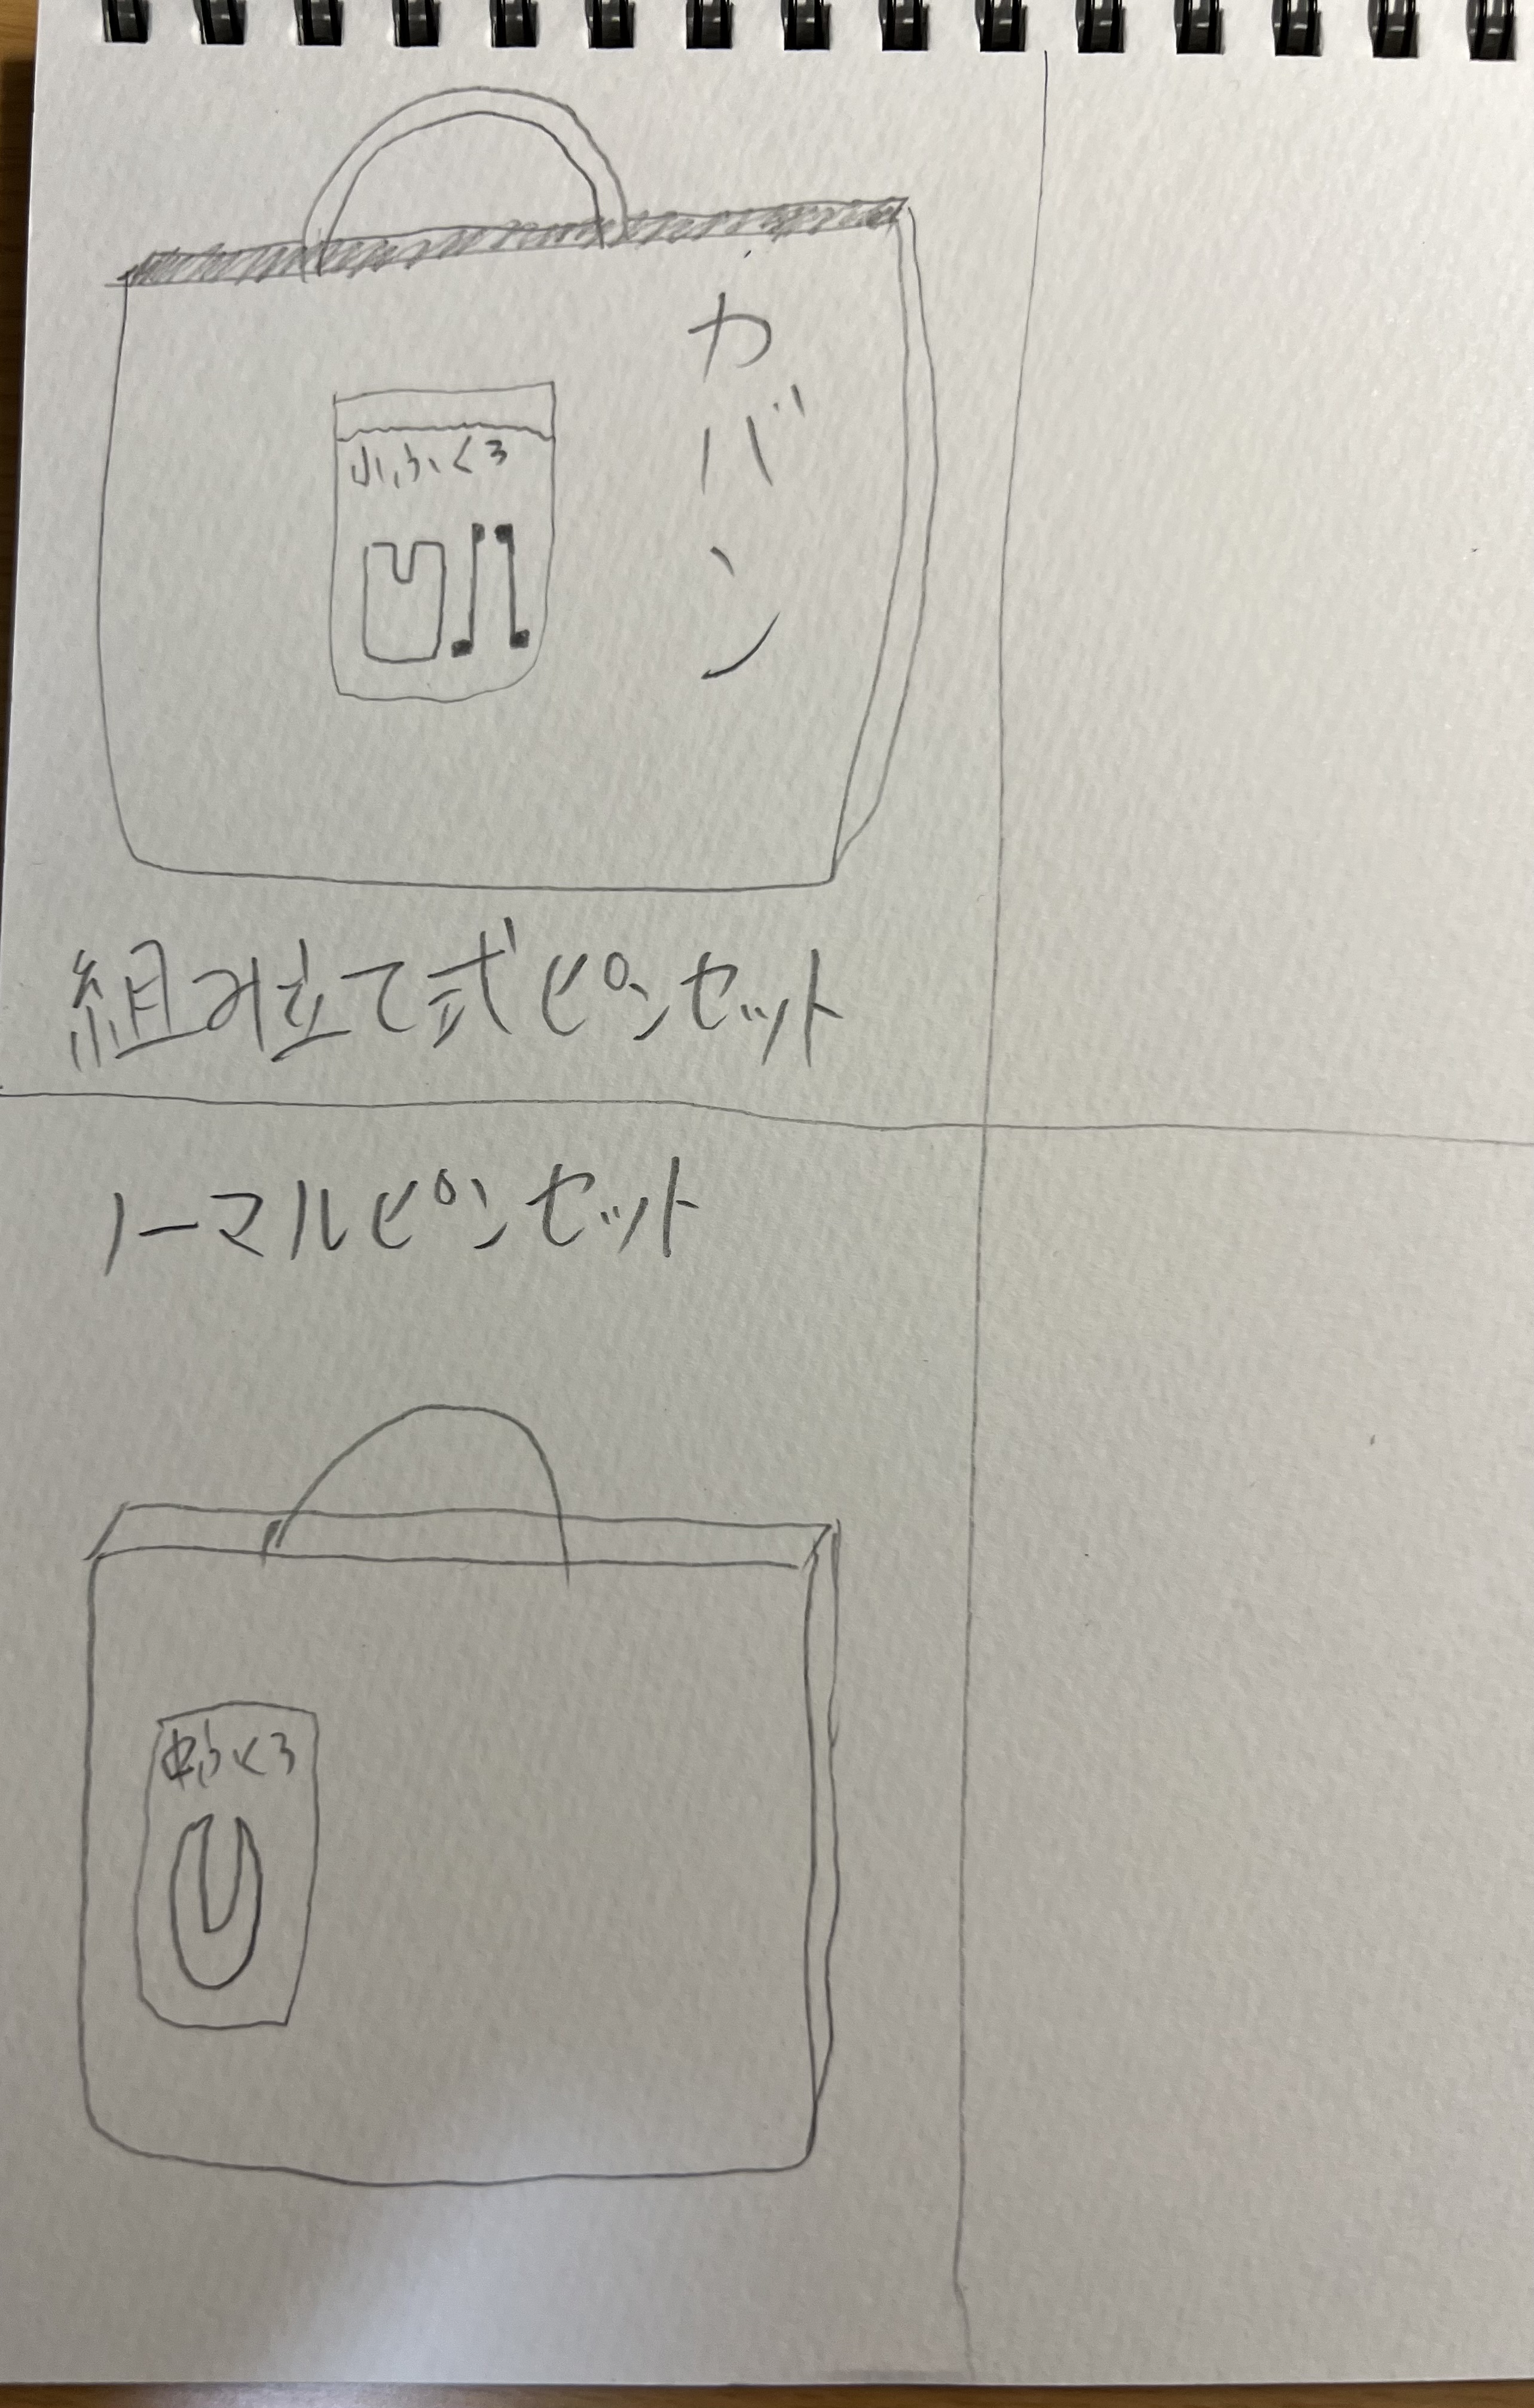 カバン
小ふくろ
組み立て式ピンセット
ノーマルピンセット
ふくろ